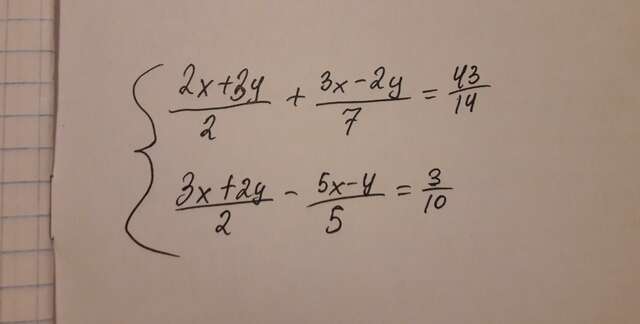 { (2x+3y)/2 + (3x-2y)/7 = 43/14
(3x+2y)/2 - (5x-y)/5 = 3/10